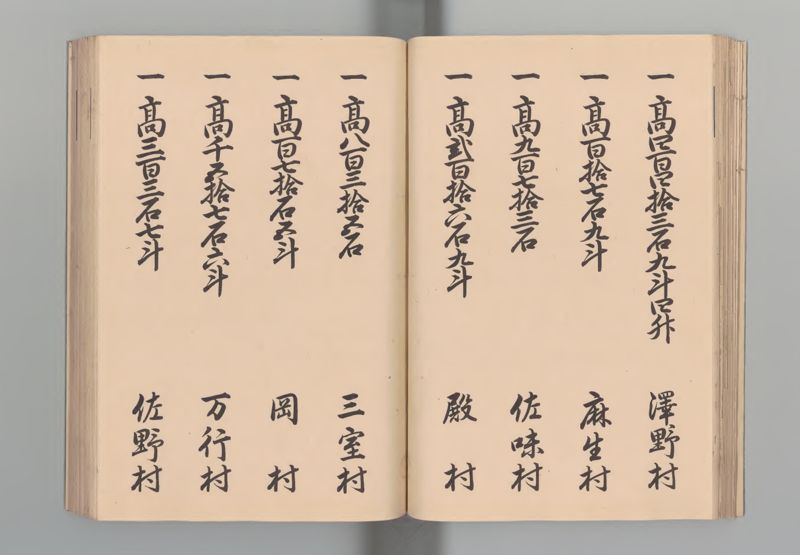 一 高四百四拾三石九斗四升 澤野村
一 高百拾七石九斗 麻生村
一 高九百七拾三石 佐味村
一 高貳百拾六石九斗 殿村
一 高八百三拾五石 三室村
一 高百七拾石五斗 岡村
一 高千五拾七石六斗 万行村
一 高三百三石七斗 佐野村